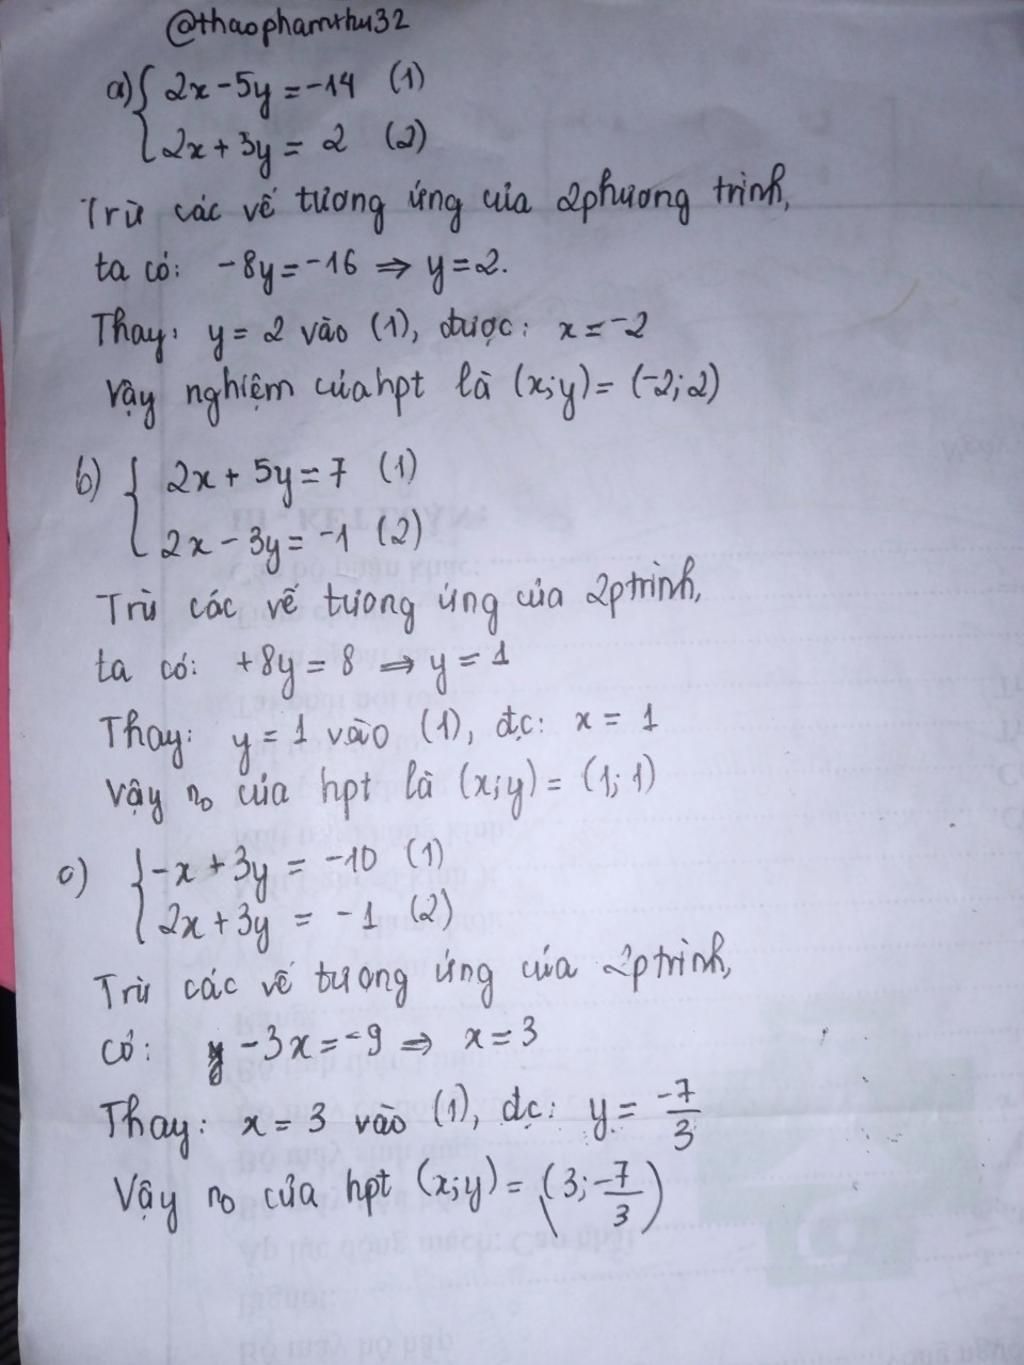 @thaophamthu32
a) { 2x - 5y = -14 (1)
2x + 3y = 2 (2)
Trừ các vế tương ứng của 2 phương trình,
ta có: -8y = -16 ⇒ y = 2.
Thay: y = 2 vào (1), được: x = -2
Vậy nghiệm của hpt là (x;y) = (-2;2)
b) { 2x + 5y = 7 (1)
2x - 3y = -1 (2)
Trừ các vế tương ứng của 2ptrình,
ta có: +8y = 8 ⇒ y = 1
Thay: y = 1 vào (1), đc: x = 1
Vậy no của hpt là (x;y) = (1;1)
c) { -x + 3y = -10 (1)
2x + 3y = -1 (2)
Trừ các vế tương ứng của 2ptrình,
có: -3x = -9 ⇒ x = 3
Thay: x = 3 vào (1), đc: y = -7/3
Vậy no của hpt (x;y) = (3; -7/3)